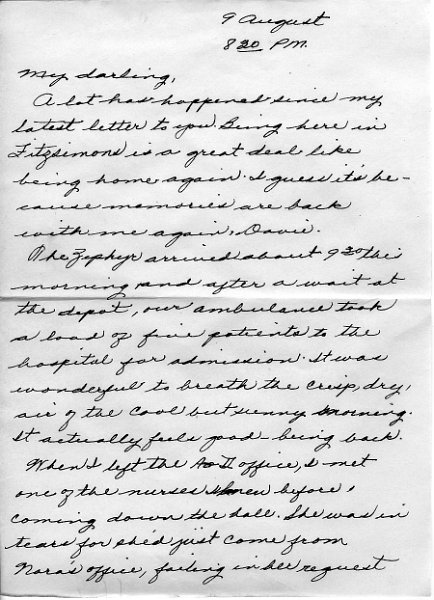 9 August
8 20 P.M.
My darling,
A lot has happened since my
latest letter to you. Being here in
Fitzsimons is a great deal like
being home again. I guess it's be-
cause memories are back
with me again, Davie.
The Zephyr arrived about 9 30 this
morning and after a wait at
the depot, our ambulance took
a load of five patients to the
hospital for admission. It was
wonderful to breath the crisp, dry,
air of the cool but sunny morning.
It actually feels good being back.
When I left the A & D office, I met
one of the nurses I knew before,
coming down the hall. She was in
tears for she'd just come from
Nora's office, failing in her request